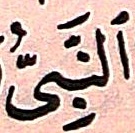 اَلنَّبِىُّ